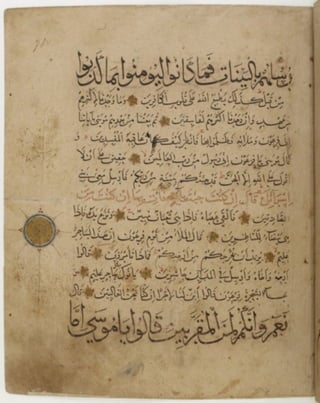 رسلهم بالبينات فما كانوا ليؤمنوا بما كذبوا
من قبل كذلك يطبع الله على قلوب الكافرين وما وجدنا لأكثرهم
من عهد وإن وجدنا أكثرهم لفاسقين ثم بعثنا من بعدهم موسى بآياتنا
إلى فرعون وملائه فظلموا بها فانظر كيف كان عاقبة المفسدين و
قال موسى يا فرعون إني رسول من رب العالمين حقيق على أن لا
أقول على الله إلا الحق قد جئتكم ببينة من ربكم فأرسل معي بني
إسرائيل قال إن كنت جئت بآية فأت بها إن كنت من
الصادقين فألقى عصاه فإذا هي ثعبان مبين ونزع يده فإذا
هي بيضاء للناظرين قال الملأ من قوم فرعون إن هذا لساحر
عليم يريد أن يخرجكم من أرضكم فماذا تأمرون قالوا
أرجه وأخاه وأرسل في المدائن حاشرين يأتوك بكل ساحر عليم
وجاء السحرة فرعون قالوا إن لنا لأجرا إن كنا نحن الغالبين قال
نعم وإنكم لمن المقربين قالوا يا موسى إما